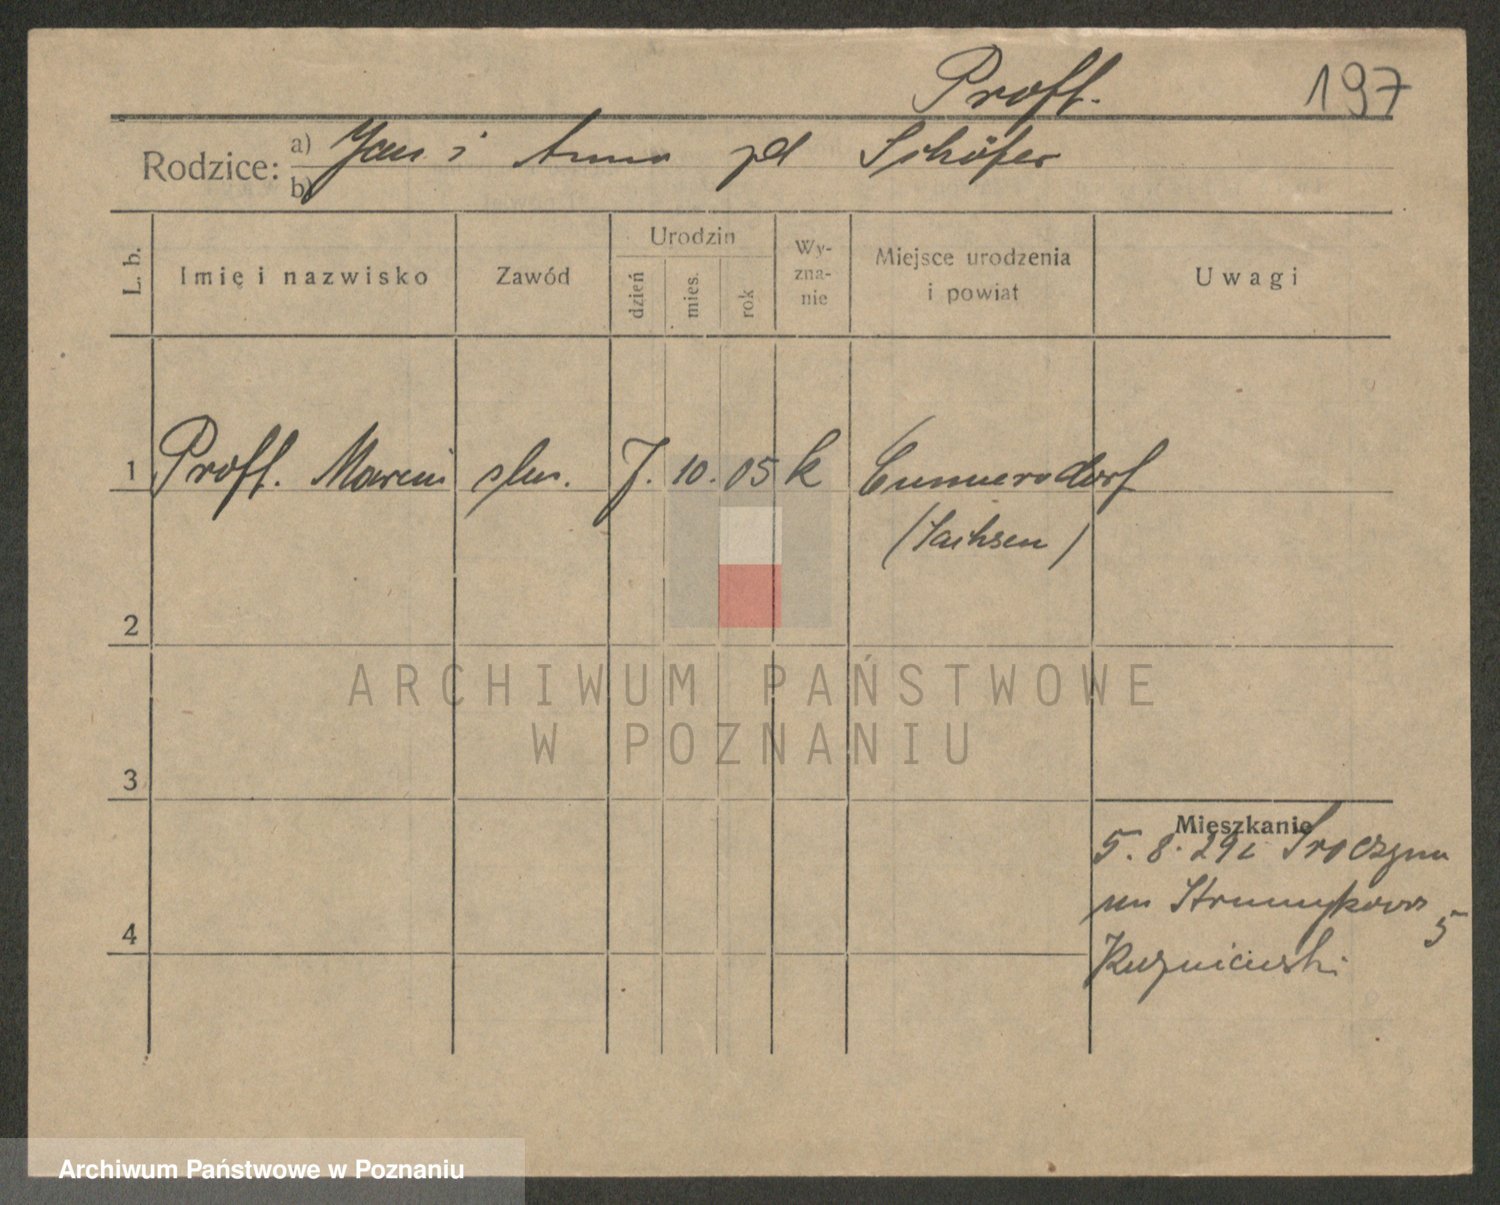 Proft.
197
Rodzice:
a) Jan i Anna zd Schöfer
b)
L. b.
Imię i nazwisko
Zawód
Urodzin
dzień
mies.
rok
Wy-
zna-
nie
Miejsce urodzenia
i powiat
Uwagi
1 Proft. Marcin ślus. 7. 10. 05 k Cunnersdorf
(Sachsen)
2
3
4
Mieszkanie
5. 8. 29 z
5
ARCHIWUM PAŃSTWOWE
W POZNANIU
Archiwum Państwowe w Poznaniu